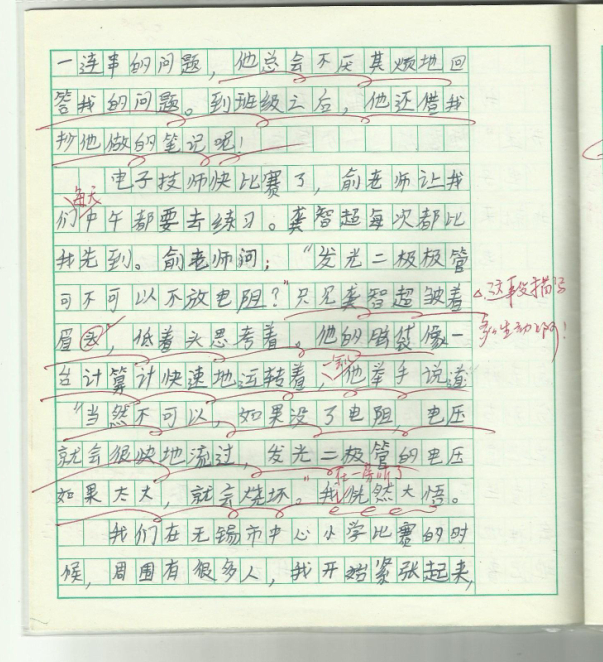 一连串的问题，他总会不厌其烦地回
答我的问题。到班级之后，他还借我
抄他做的笔记呢！
电子技师快比赛了，俞老师让我
每天
们中午都要去练习。龚智超每次都比
我先到。俞老师问：“发光二极极管
可不可以不放电阻？”只见龚智超皱着
这段描写
眉    ，低着头思考着。他的脑袋像一
多生动啊！
台计算计快速地运转着，他举手说道
“当然不可以，如果没了电阻，电压
就会很快地流过，发光二极管的电压
如果太大，就会烧坏。”我恍然大悟。
我们在无锡市中心小学比赛的时
候，周围有很多人，我开始紧张起来，